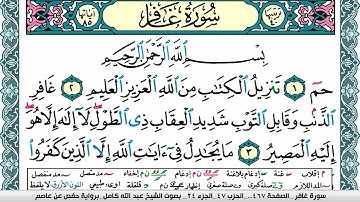 سُورَةُ غَافِرٍ
آياتها ٨٥
بِسْمِ ٱللَّهِ ٱلرَّحْمَٰنِ ٱلرَّحِيمِ
حمٓ ١ تَنزِيلُ ٱلْكِتَٰبِ مِنَ ٱللَّهِ ٱلْعَزِيزِ ٱلْعَلِيمِ ٢ غَافِرِ
ٱلذَّنۢبِ وَقَابِلِ ٱلتَّوْبِ شَدِيدِ ٱلْعِقَابِ ذِى ٱلطَّوْلِ ۖ لَآ إِلَٰهَ إِلَّا هُوَ ۖ
إِلَيْهِ ٱلْمَصِيرُ ٣ مَا يُجَٰدِلُ فِىٓ ءَايَٰتِ ٱللَّهِ إِلَّا ٱلَّذِينَ كَفَرُوا۟
سورة غافر - الصفحة ٤٦٧ - الحزب ٤٧ - الجزء ٢٤ - بصوت الشيخ عبد الله كامل برواية حفص عن عاصم